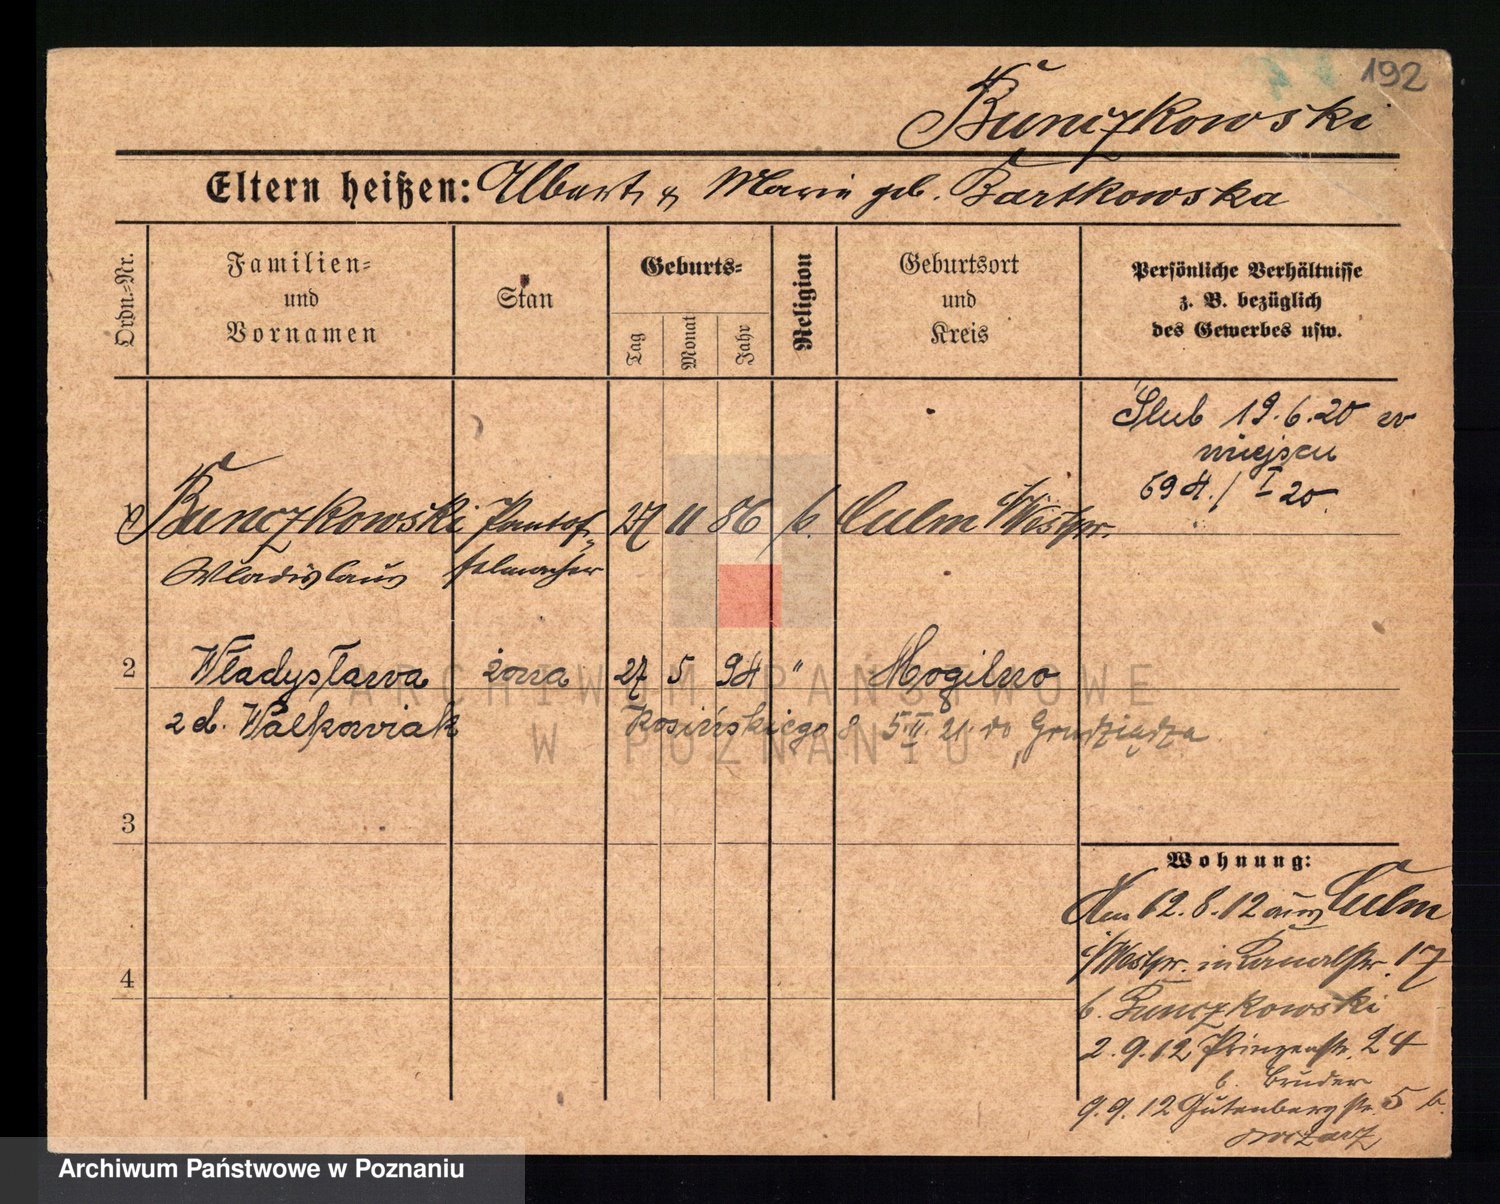 192
Bunczkowski
Eltern heißen: Albert & Marie geb. Bartkowska
Ordn.-Nr.
Familien- und Vornamen
Stan
Geburts-
Tag
Monat
Jahr
Religion
Geburtsort und Kreis
Persönliche Verhältnisse z. B. bezüglich des Gewerbes usw.
Ślub 19.6.20 w
miejscu
Bunczkowski Pantof- 27 11 86 k. Culm i/Westpr.
Wladislaus felmacher
2 Władysława żona 27 5 94 " Mogilno
z d. Walkowiak Kosińskiego 8 5 II. 21. do Grudziądza
3
Wohnung:
Am 12.8.12 aus Culm
i/Westpr. in Kanalstr. 17
b. Bunczkowski
4
2.9.12 Prinzenstr. 24
b. Bruder
9.9.12 Gutenbergstr. 5 b.
ARCHIWUM PAŃSTWOWE
W POZNANIU
Archiwum Państwowe w Poznaniu